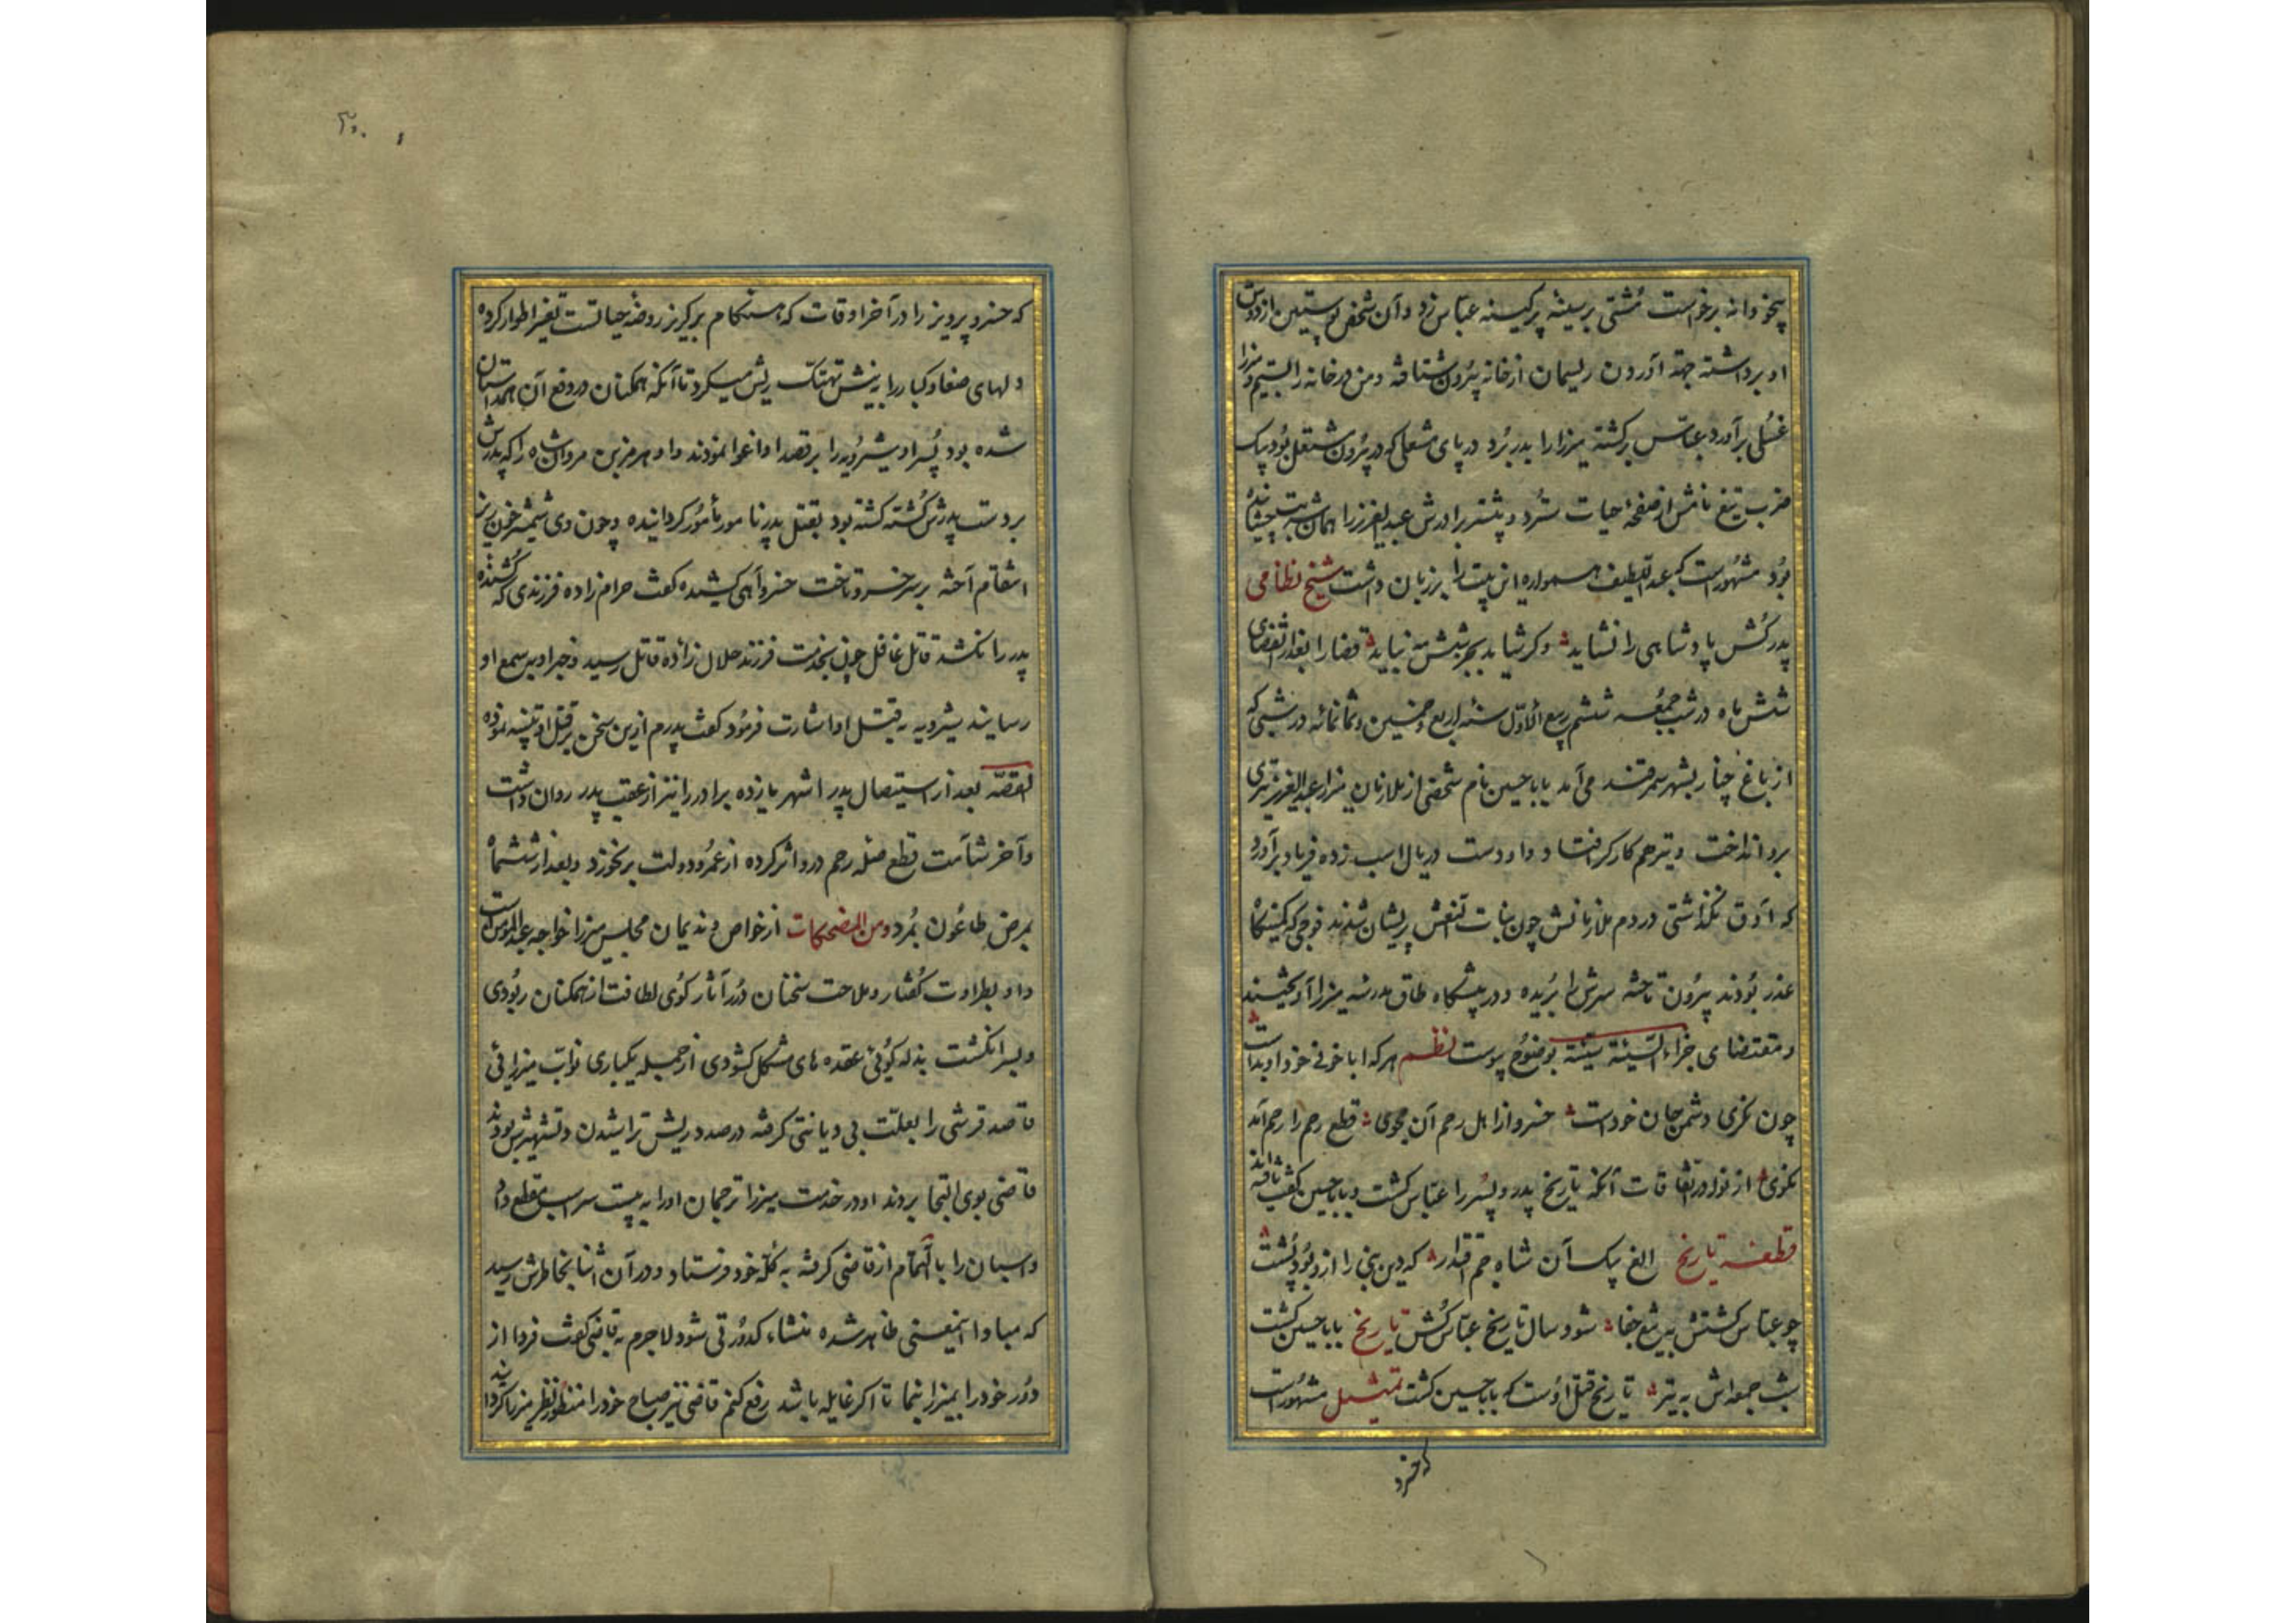 بیخودانه برخواست مشتی بر سینهٔ پرکینه عباس زد و آن شخص پوستین از دوش
او برداشته جهة آوردن ریسمان از خانه بیرون شتافته و من در خانه را بستم و میرزا
غسلی برآورد عباس برگشته میرزا را بدر برد در پای مشعلی که در بیرون مشتعل بود بیک
ضرب تیغ نامش از صفحهٔ حیات سترد و پیشتر برادرش عبدالعزیز را همان شربت چشانیده
بود مشهور است که عبداللطیف همواره این بیت را بر زبان داشت شیخ نظامی
پدر کش پادشاهی را نشاید وکر شاید بجز شش مه نپاید قضا را بعد از انقضای
شش ماه در شب جمعه ششم ربیع الاول سنه اربع و خمسین و ثمانمائه در شبی که
از باغ چنار بشهر سمرقند می آمد بابا حسین نام شخصی از ملازمان میرزا عبدالعزیز تیری
برو انداخت و تیر هم کارکر افتاد و او دست در یال اسب زده فریاد برآورد
که اوق نکذاشتی در دم ملازمانش چون بنات النعش پریشان شدند فوجی که در کمینکاه
غدر بودند بیرون تاخته سرش را بریده و در پیشکاه طاق مدرسه میرزا آویختند
و مقتضای جزاء السیئة سیئة بوضوح پیوست نظم هر که او با خونی خود او بد است
چون نکری دشمن جان خود است خسرو از اهل رحم آن مجوی قطع رحم را رحم آمد
نکوی از نوادر اتفاقات آنکه تاریخ پدر و پسر را عباس کشت و بابا حسین کشت یافته اند
قطعه تاریخ الغ بیک آن شاه جم اقتدار که دین نبی را ازو بود پشت
چو عباس کشتش به تیغ جفا شود سال تاریخ عباس کشت تاریخ بابا حسین کشت
شب جمعه اش به تیر تاریخ قتل اوست که بابا حسین کشت تمثیل مشهور است
که خسرو
که خسرو پرویز را در آخر اوقات که هنکام برکریز روضهٔ حیاتست تغیر اطوار کرده
دلهای صغار و کبار را به نیش تهتک ریش میکرد تا آنکه همکنان در دفع آن همداستان
شده بود پسر او شیرویه را بر قصد او اغوا نمودند و او هرمز بن مردانشاه را که پدرش
بر دست پدرش کشته کشته بود بقتل پدر نامور مأمور کردانیده و چون وی شمشیر خون ریز
انتقام آخته بر سر خسرو تاخت خسرو آهی کشیده کفت حرام زاده فرزندی که کشنده
پدر را نکشد قاتل غافل چون بخدمت فرزند حلال زادهٔ قاتل رسید و خبر او به سمع او
رسانید شیرویه به قتل او اشارت فرمود کفت پدرم ازین سخن بر قتل او تنبیه نموده
القصّه بعد از استیصال پدر اشهر یازده برادر را نیز از عقب پدر روان داشت
و آخر شآمت قطع صله رحم درو اثر کرده از عمر و دولت برنخورد و بعد از شش ماه
بمرض طاعون بمرد ومن المضحکات از خواص و ندیمان مجلس میرزا خواجه عبدالمؤمن است
و او بطراوت کفتار و ملاحت سخنان درر آثار کوی لطافت از همکنان ربودی
و بسر انکشت بذله کوئی عقده های مشکل کشودی از جمله یکباری نواب میرزائی
قاصد قرشی را بعلت بی دیانتی کرفته در صدد ریش تراشیدن و تشهیرش بودند
قاضی بوی التجا بردند او در خدمت میرزا ترجمان او را به بیست سر اسب مقطع داد
و اسبان را بالتمام از قاضی کرفته به کله خود فرستاد و در آن اثنا بخاطرش رسید
که مبادا اینمعنی ظاهر شده منشاء کدورتی شود لاجرم به قاضی کفت فردا از
دور خود را بمیرزا نما تا اکر غایله باشد رفع کنم قاضی نیز صباح خود را منظور نظر میرزا کردانید